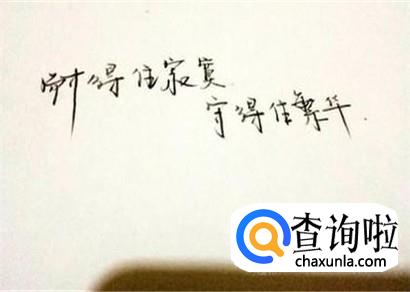 耐得住寂寞
守得住繁华
查询啦
chaxunla.com